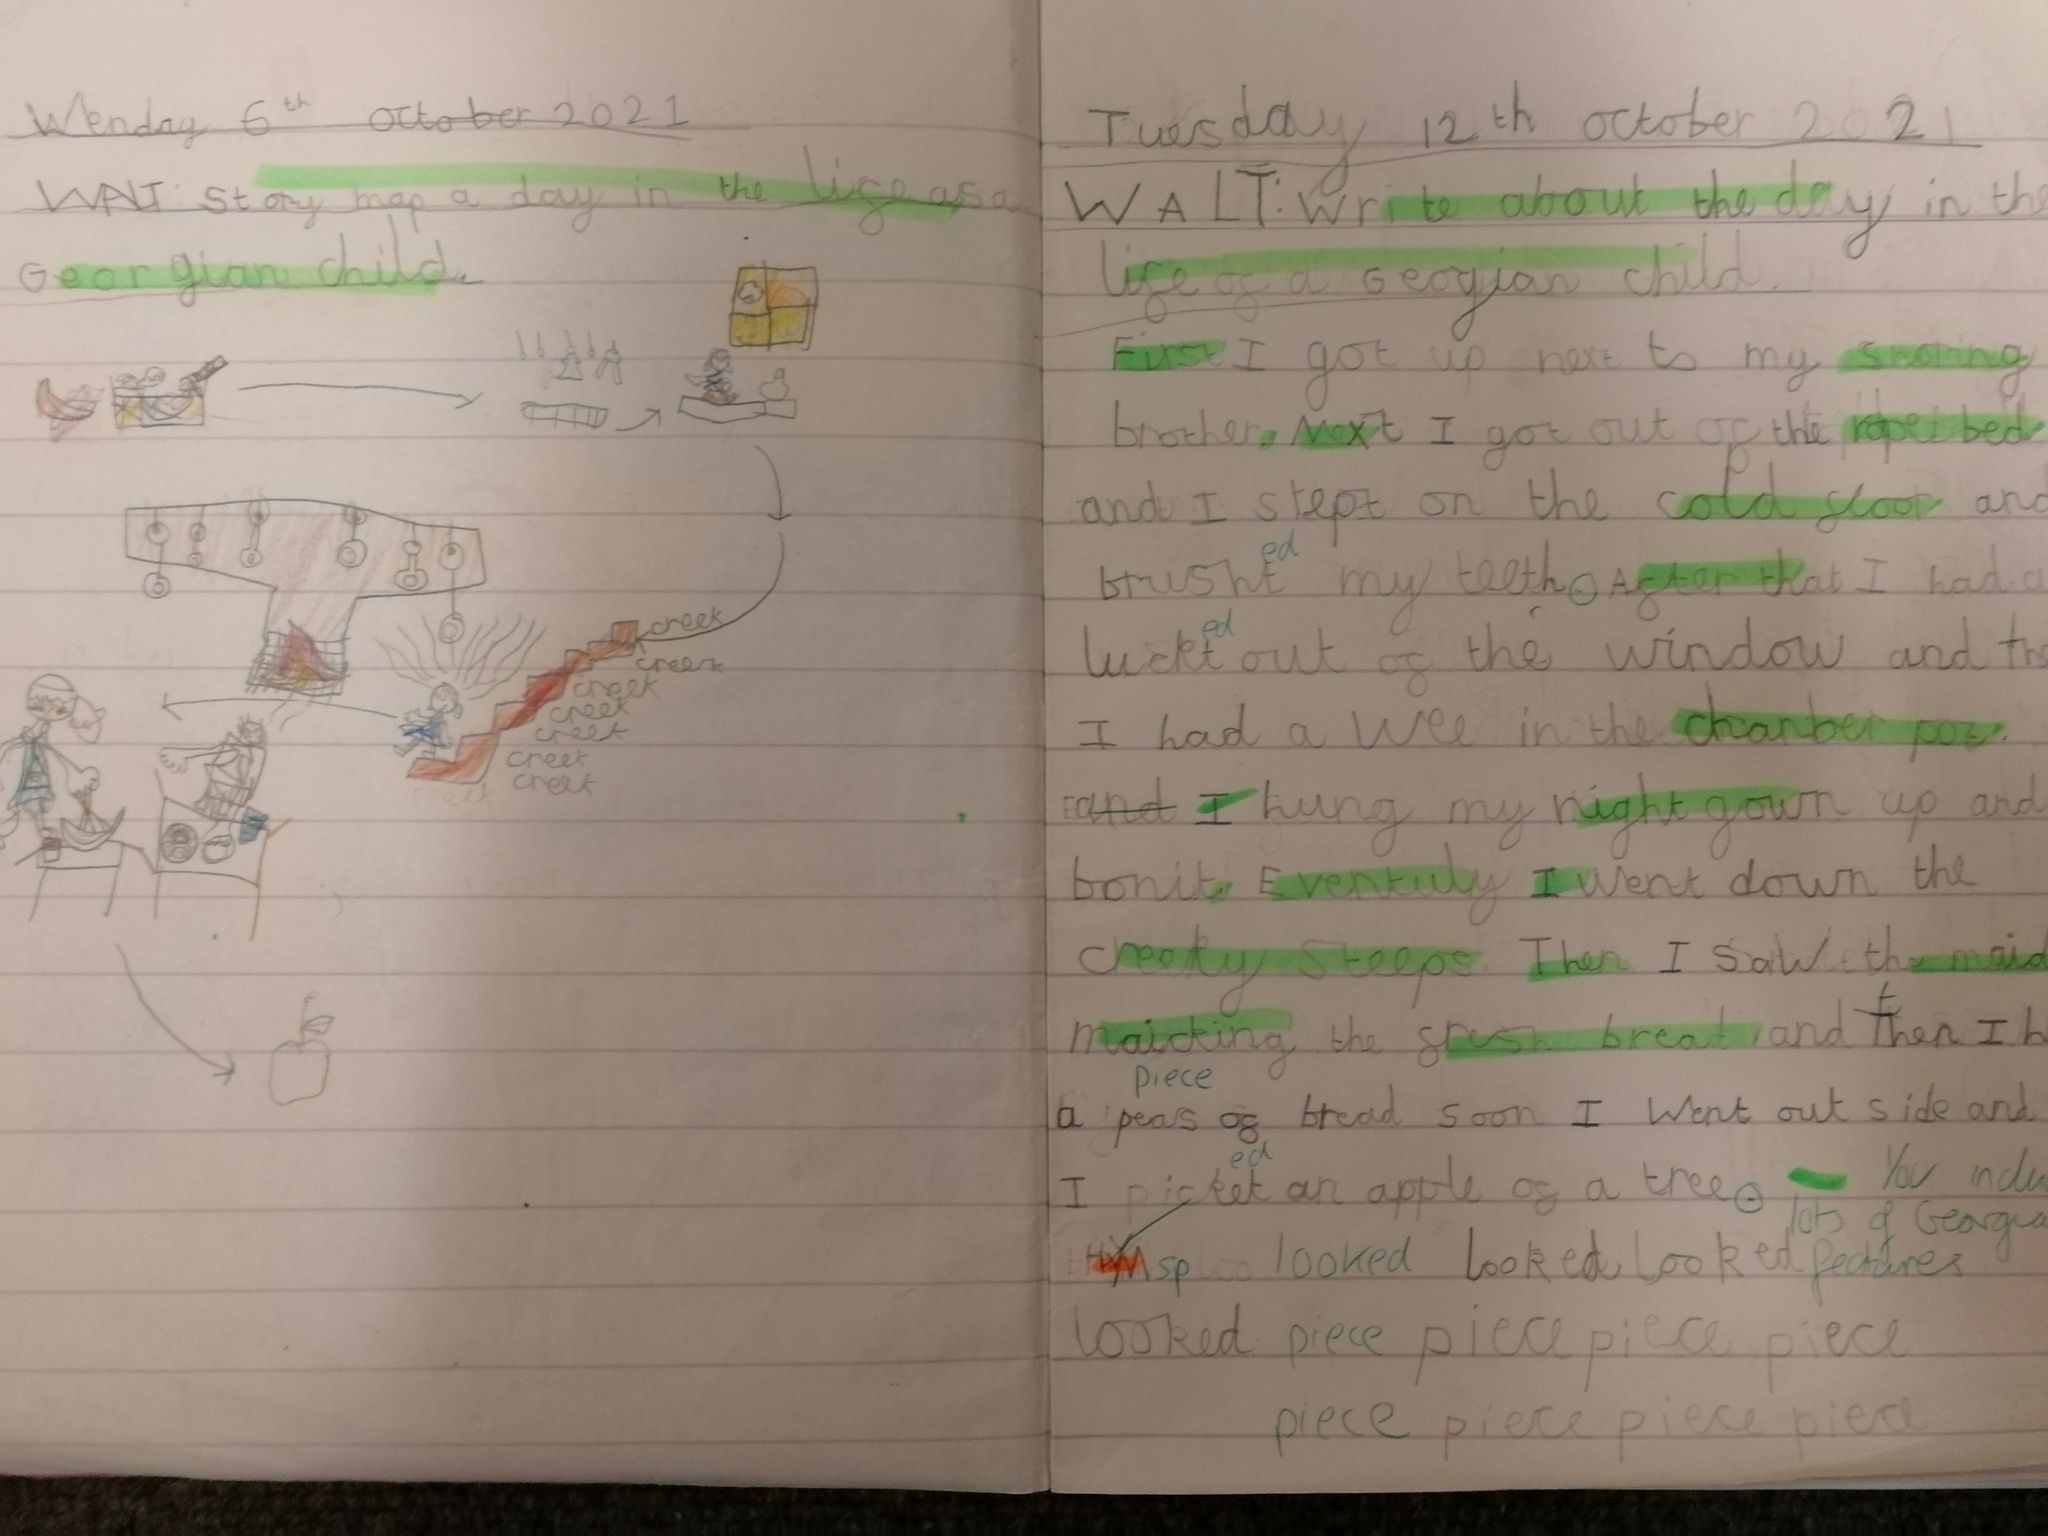 Wenday 6th october 2021
WALT: Story map a day in the life as a
Georgian child.
creek
creek
creek
creek
creek
creek
creek
creek
Tuesday 12th october 2021
WALT: Write about the day in the
life of a Geogian child.
First I got up next to my snoring
brother. Next I got out of the ropei bed
and I stept on the cold floor and
ed
brusht my teeth. After that I had a
ed
luckt out of the window and
I had a wee in the chanber pot.
and I hung my night gown up and
bonit. Eventuly I went down the
creeky steeps. Then I saw the maid
maicking the fresh bread and then I
piece
a peas of bread soon I went out side and
ed
I picket an apple of a tree. You
lots of
sp looked looked looked features
looked piece piece piece piece
piece piece piece piece